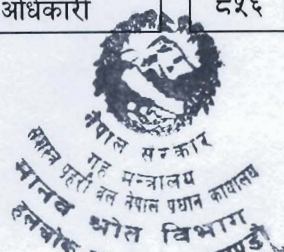 अधिकारी ८५६
नेपाल सरकार
गृह मन्त्रालय
सशस्त्र प्रहरी बल नेपाल प्रधान कार्यालय
मानव श्रोत विभाग
हलचोक